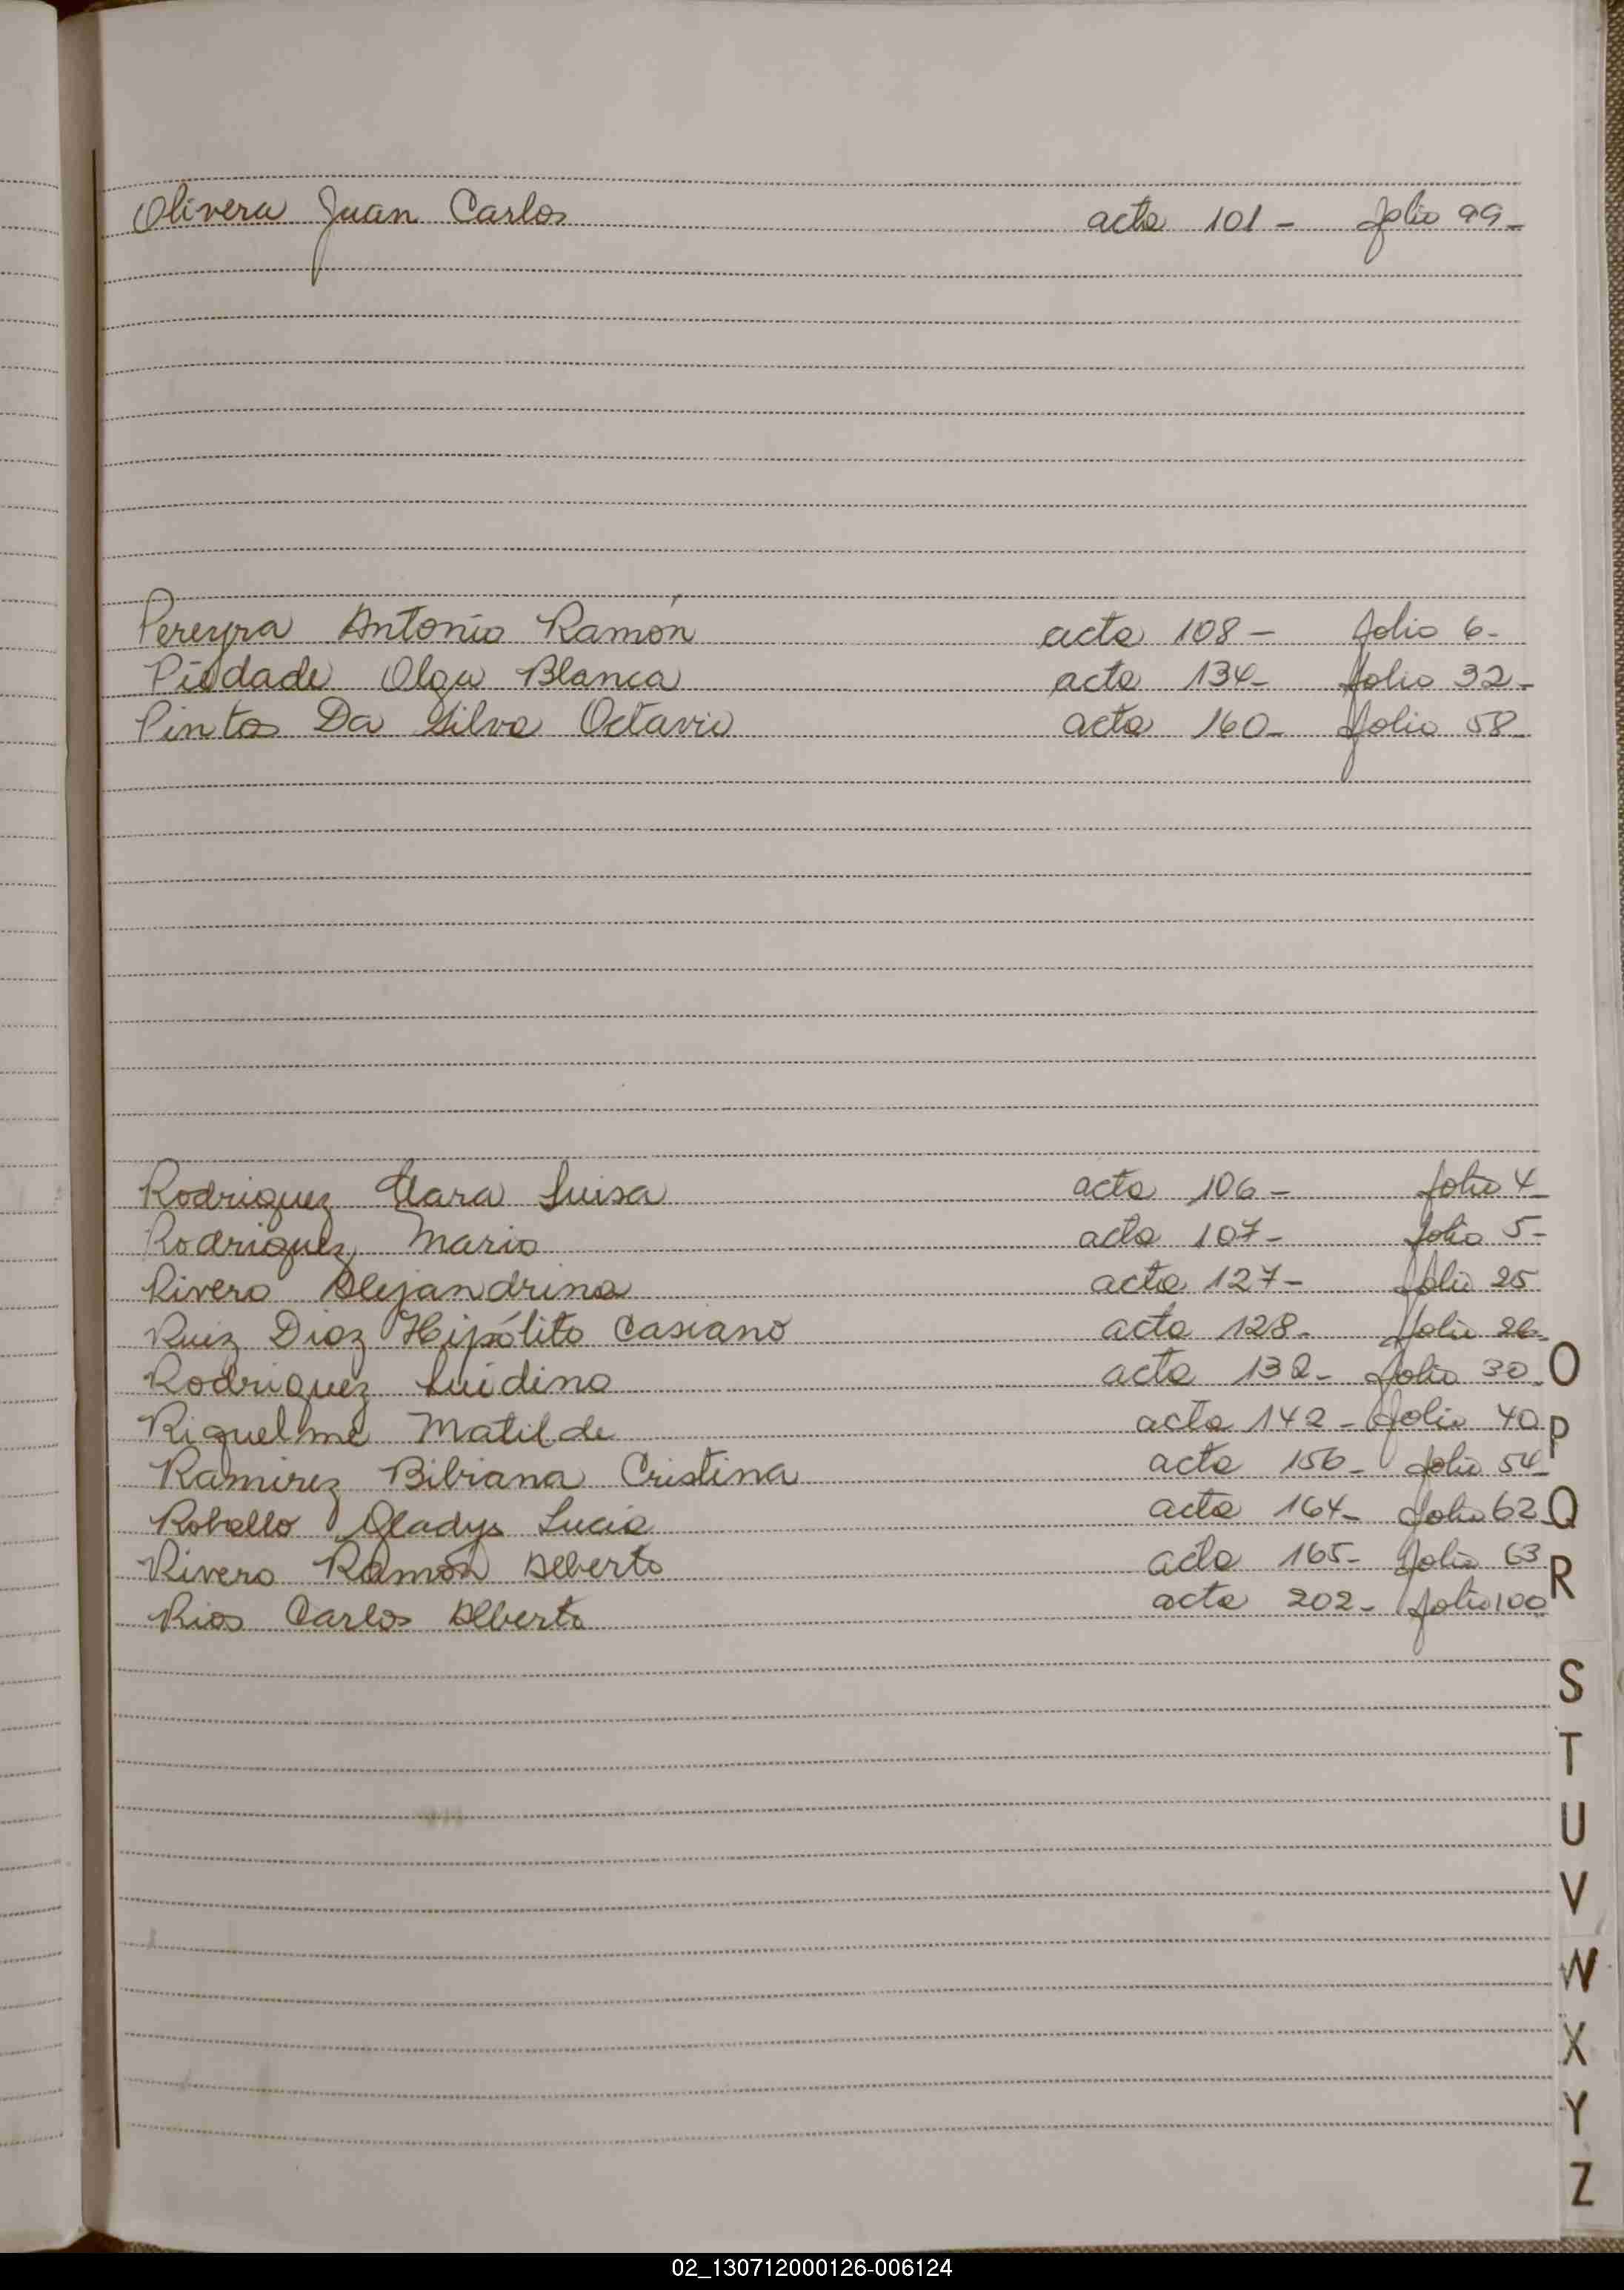 Olivera Juan Carlos acta 101- folio 99-
Pereyra Antonio Ramón acta 108- folio 6-
Piedade Olga Blanca acta 134- folio 32-
Pintos Da Silva Octavio acta 160- folio 58-
Rodriguez Clara Luisa acta 106- folio 4-
Rodriguez Mario acta 107- folio 5-
Rivero Alejandrina acta 127- folio 25
Ruiz Diaz Hipólito Casiano acta 128- folio 26-
Rodriguez Luidina acta 132- folio 30-
Riquelme Matilde acta 142- folio 40
Ramirez Bibiana Cristina acta 156- folio 54-
Roballo Gladys Lucia acta 164- folio 62-
Rivero Ramón Alberto acta 165- folio 63
Rios Carlos Alberto acta 202- folio 100
O
P
Q
R
S
T
U
V
W
X
Y
Z
02_130712000126-006124